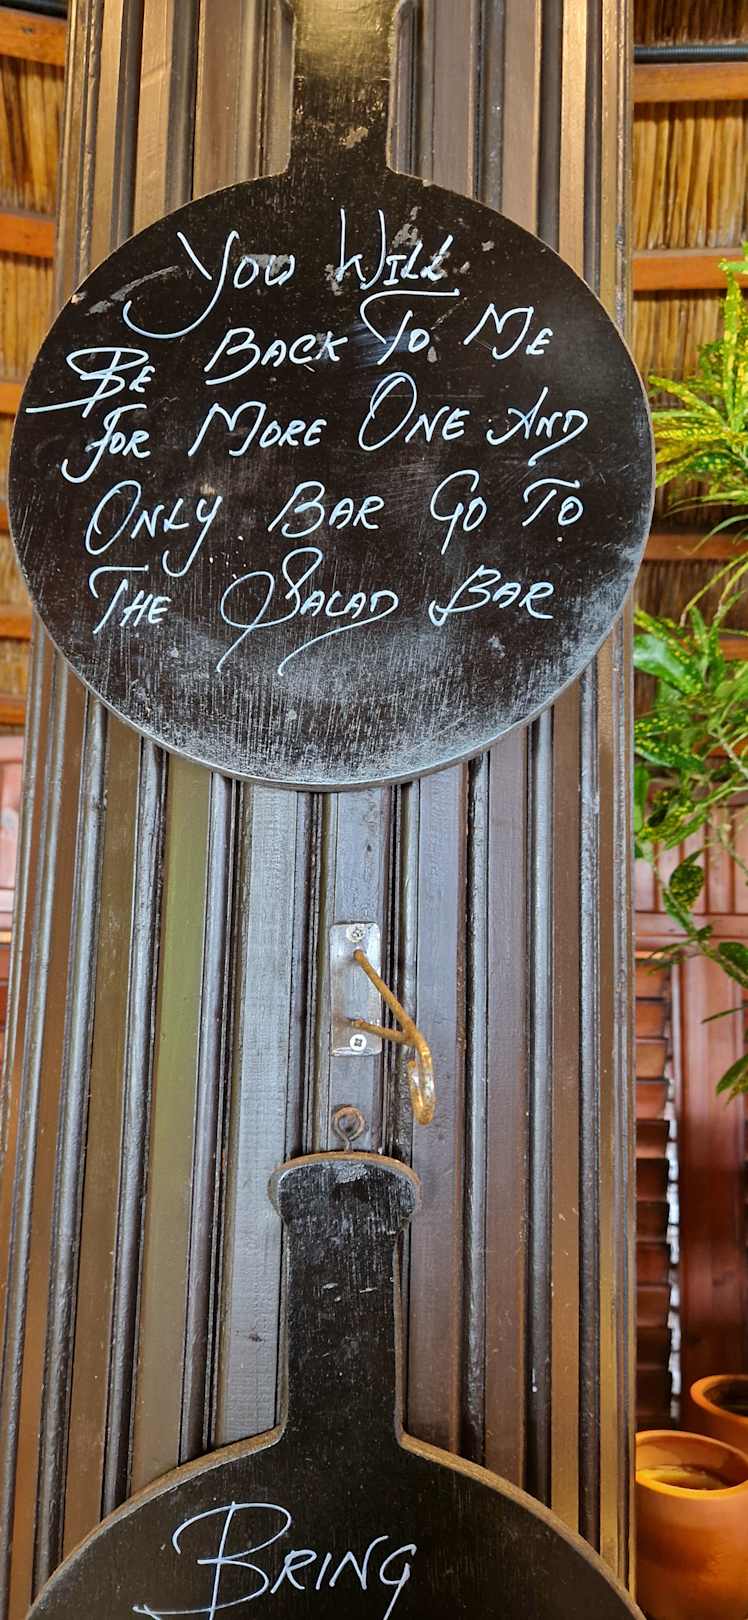 You WILL
BE BACK TO ME
FOR MORE ONE AND
ONLY BAR GO TO
THE SALAD BAR
BRING